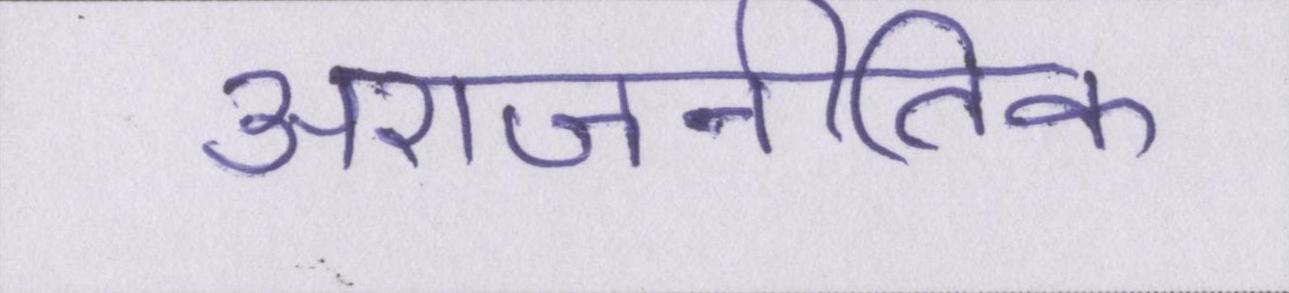 अराजनीतिक